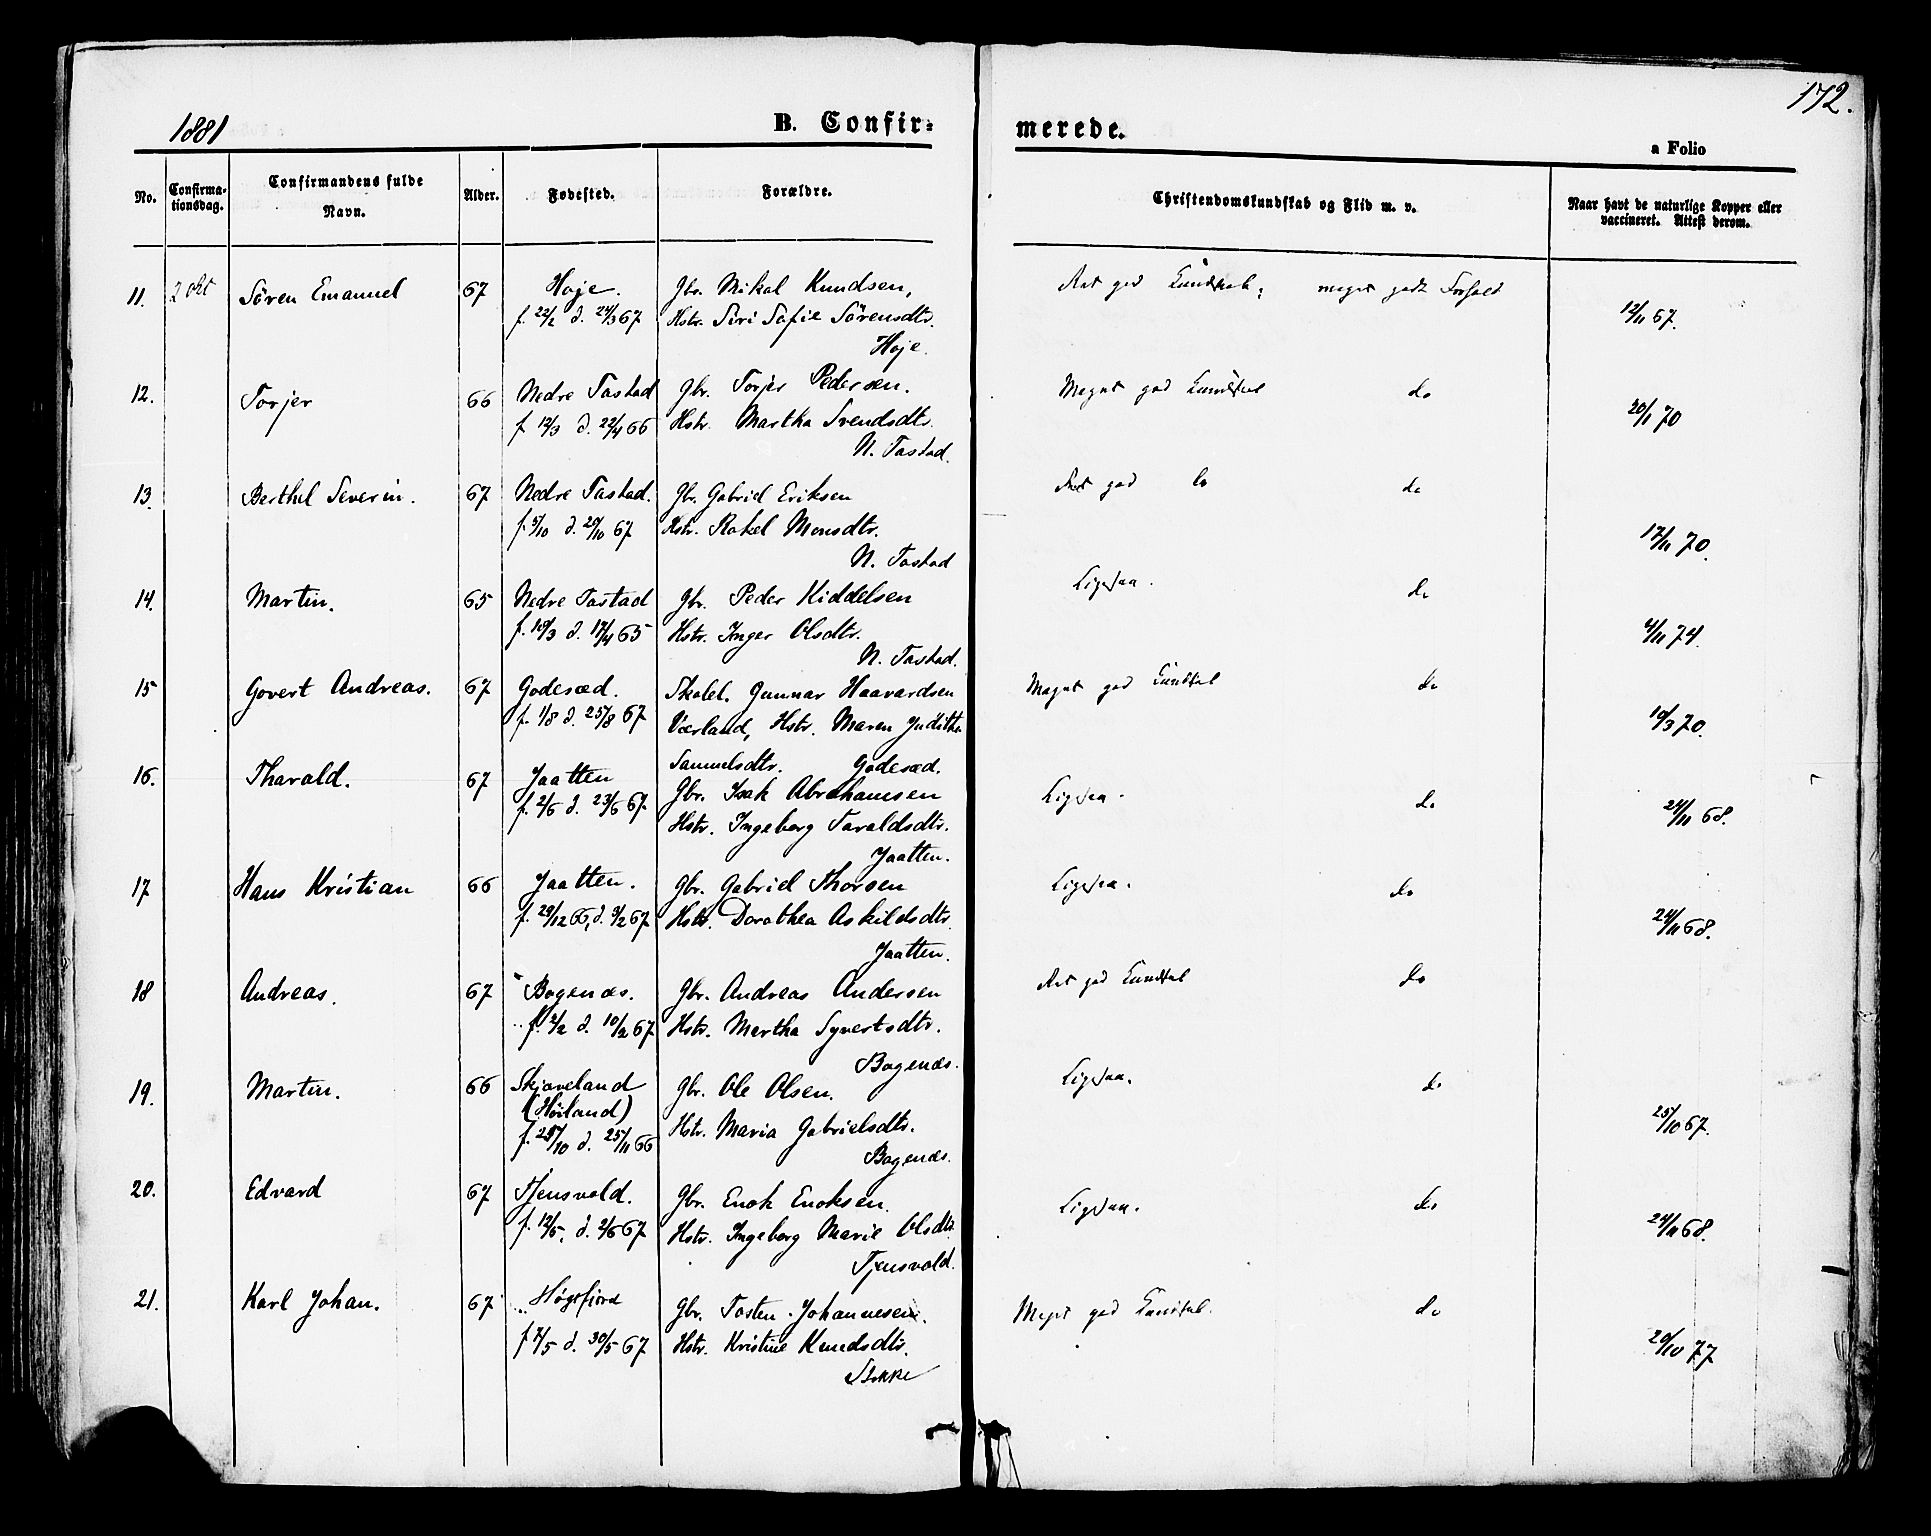 172.
1881
B. Confir-
merede.
a Folio
No.
Confirma-
tionsdag.
Confirmandens fulde
Navn.
Alder.
Fødested.
Forældre.
Christendomskundskab og Flid m. v.
Naar havt de naturlige Kopper eller
vaccineret. Attest derom.
11. 2 okt Sören Emanuel 67 Hoje. Gbr. Mikal Knudsen, Ret god Kundskab; meget godt Forhold
f. 22/2 d. 24/3 67 Hstr. Siri Sofie Sörensdtr. 12/11 67.
Hoje.
12. Torjer 66 Nedre Tastad Gbr. Torjer Pedersen. Meget god Kundskab do
f 12/3 d. 22/4 66 Hstr. Martha Svendsdtr. 20/1 70
N. Tastad.
13. Berthel Severin. 67 Nedre Tastad. Gbr. Gabriel Eriksen Ret god do do
f. 5/10 d. 20/10 67 Hstr. Rakel Monsdtr. 17/11 70.
N. Tastad
14. Martin. 65 Nedre Tastad Gbr. Peder Kiddelsen Ligesaa. do
f. 10/3 d. 17/4 65 Hstr. Inger Olsdtr. 4/11 74.
N. Tastad.
15 Govert Andreas. 67 Godesæd. Skolel. Gunnar Haavardsen Meget god Kundskab do
f. 1/8 d. 25/8 67 Værland, Hstr. Maren Juditha 19/3 70.
Samuelsdtr. Godesæd.
16. Tharald. 67 Jaatten Gbr. Isak Abrahamsen Ligesaa. do
f. 2/6 d. 23/6 67. Hstr. Ingeborg Taraldsdtr. 24/11 68.
Jaatten.
17 Hans Kristian 66 Jaatten. Gbr. Gabriel Thorsen Ligesaa. do
f. 29/12 66, d. 9/2 67 Hstr. Dorothea Askildsdtr. 24/11 68.
Jaatten.
18 Andreas. 67 Bogenæs. Gbr. Andreas Andersen Ret god Kundskab do
f. 2/2 d. 10/2 67 Hstr. Martha Syvertsdtr.
Bogenæs.
19. Martin. 66 Skjæveland Gbr. Ole Olsen. Ligesaa. do
(Höiland)
f. 28/10 d. 25/11 66 Hstr. Maria Gabrielsdtr. 25/10 67.
Bogenæs.
20. Edvard 67 Tjensvold. Gbr. Enok Enoksen. Ligesaa. do
f. 12/5, d. 2/6 67 Hstr. Ingeborg Marie Olsdtr. 24/11 68.
Tjensvold.
21. Karl Johan. 67 Høgsfjord Gbr. Tosten Johannesen. Meget god Kundskab. do
f 7/5 d. 30/5 67 Hstr. Kristine Knudsdtr. 20/10 77